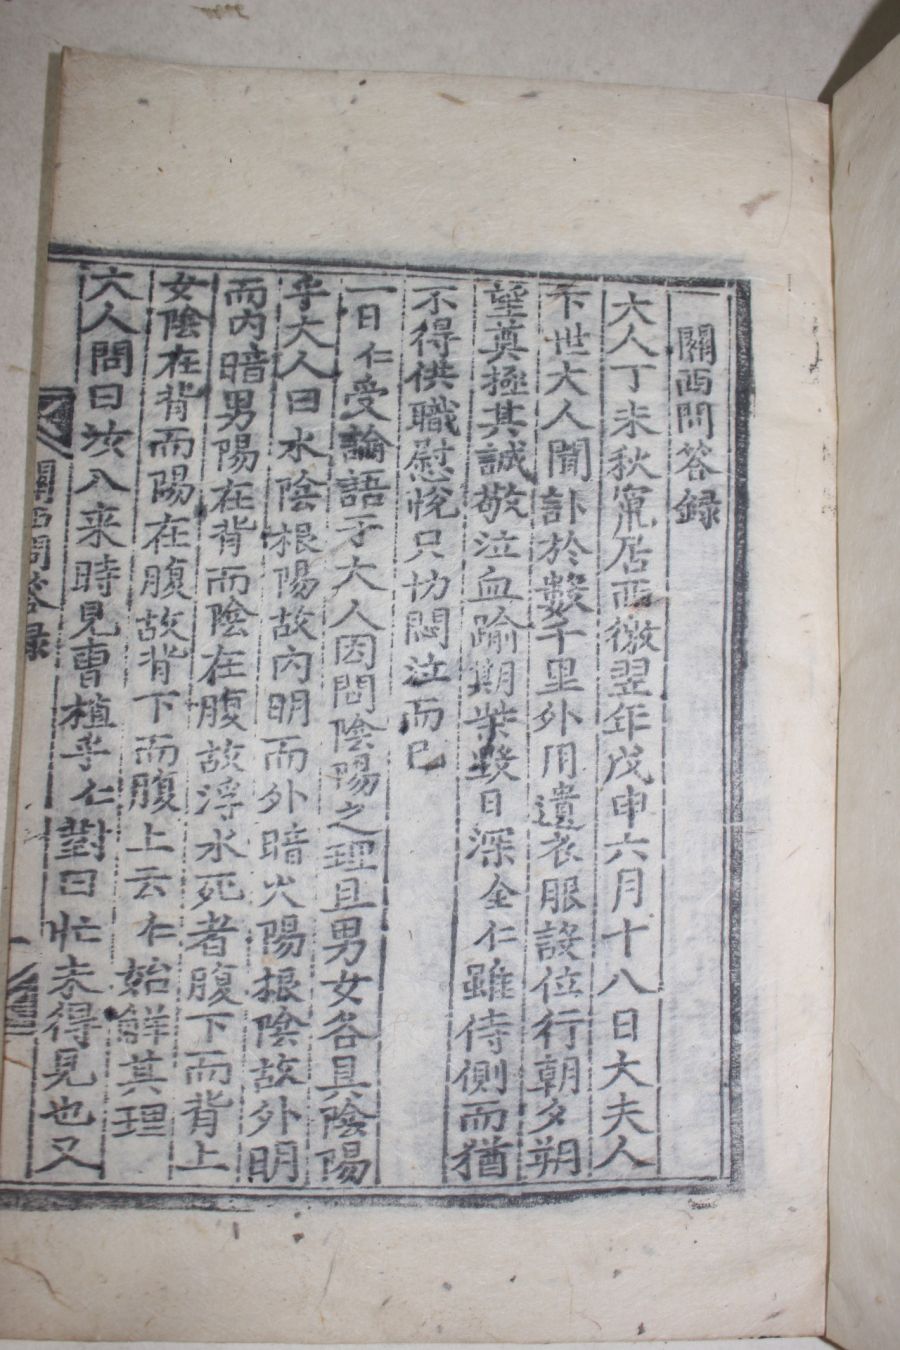 關西問荅録
大人丁未秋竄居西徼翌年戊申六月十八日大夫人
下世大人聞訃於數千里外用遺衣服設位行朝夕朔
望奠極其誠敬泣血踰期柴毁日深全仁雖侍側而猶
不得供職慰悅只切悶泣而已
一日仁受論語于大人因問陰陽之理且男女各具陰陽
乎大人曰水陰根陽故內明而外暗火陽根陰故外明
而內暗男陽在背而陰在腹故浮水死者腹下而背上
女陰在背而陽在腹故背下而腹上云仁始觧其理
大人問曰汝入来時見曺植乎仁對曰忙未得見也又
關西問荅録
一